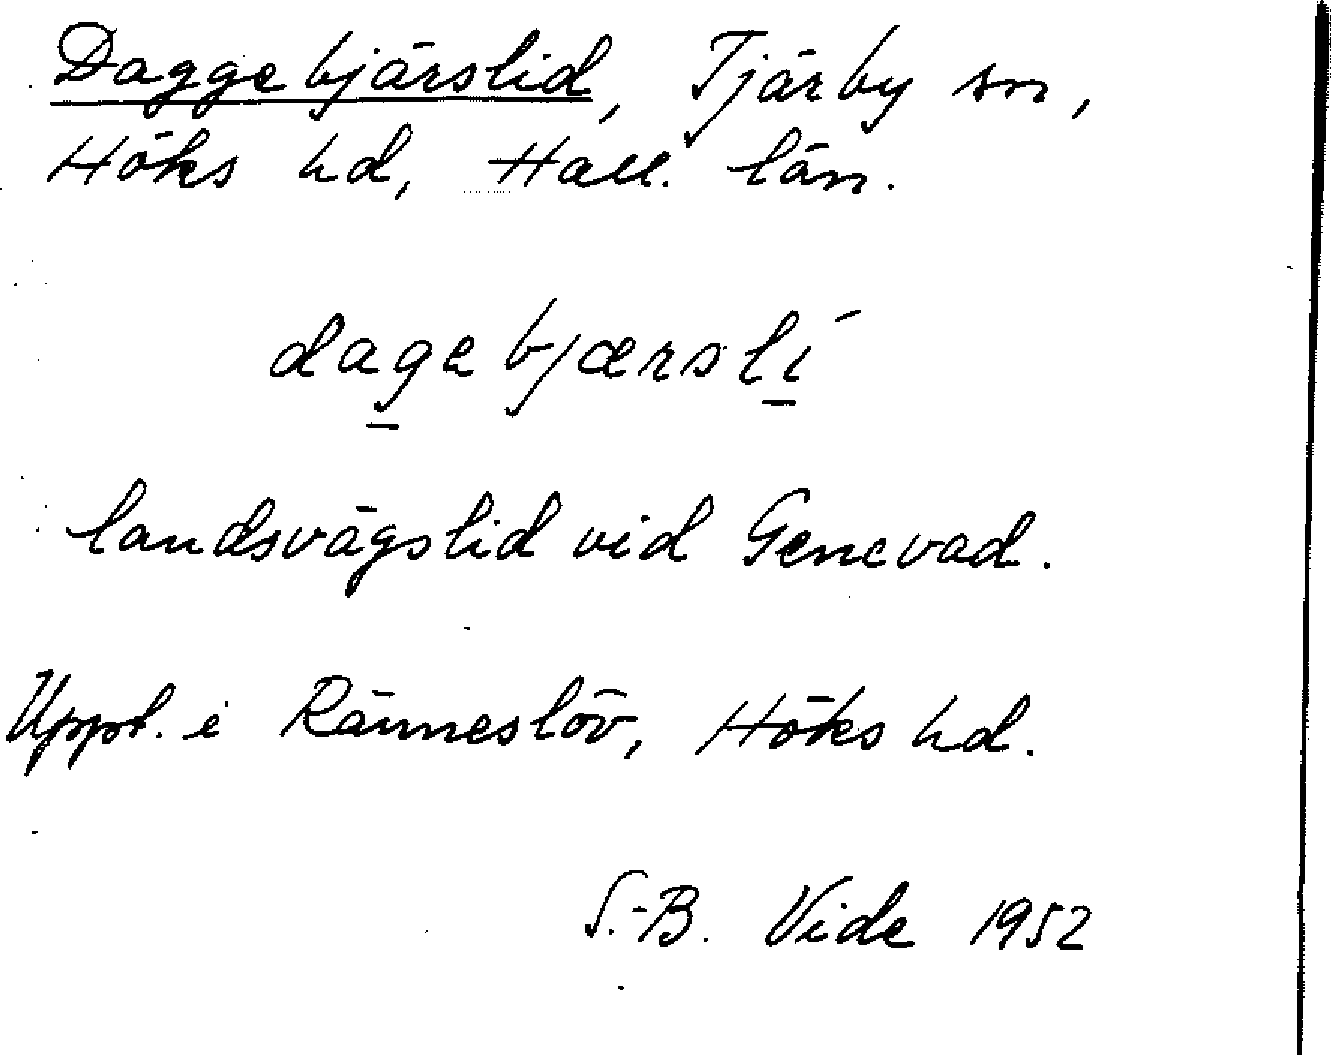 Daggebjärslid, Tjärby sn,
Höks hd, Hall. län.
dagebjærslí
landsvägslid vid Genevad.
Uppt. i Ränneslöv, Höks hd.
S.-B. Vide 1952